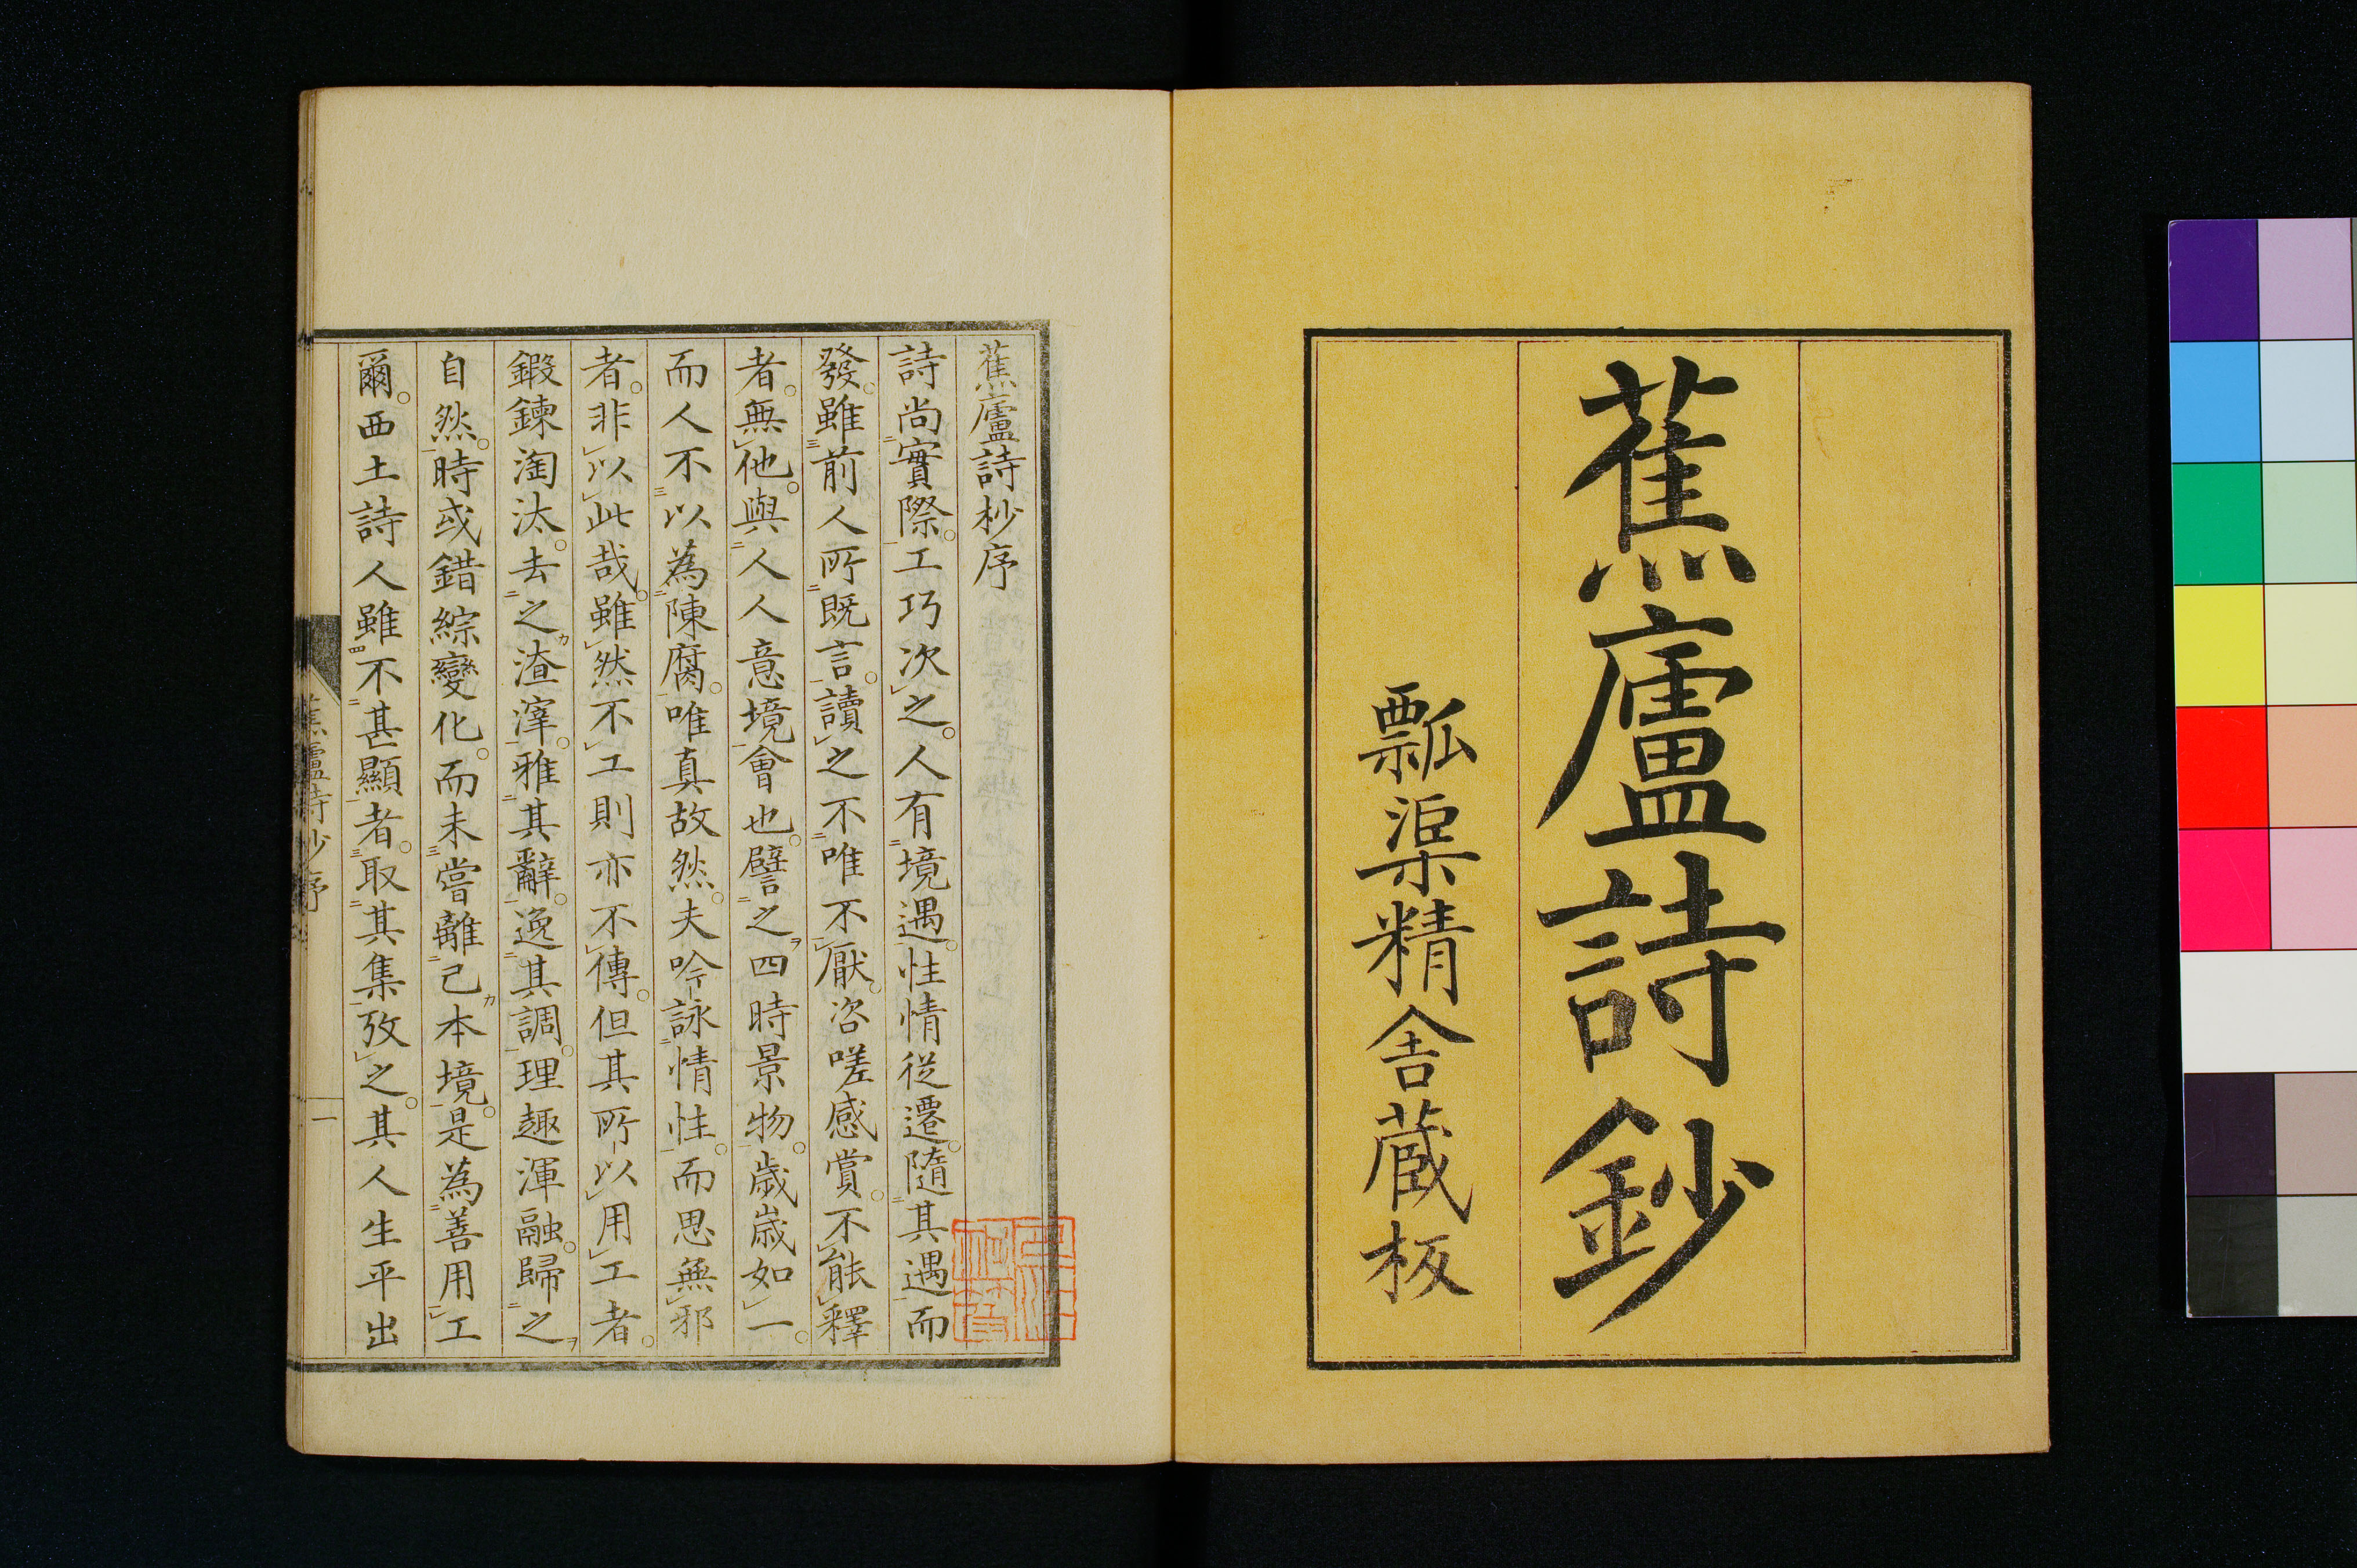 蕉廬詩鈔
瓢渠精舎蔵板
蕉廬詩杪序
詩尚實際。工巧次之。人有境遇。性情從遷。隨其遇而
發。雖前人所既言。讀之不唯不厭。咨嗟感賞。不能釋
者。無他。與人人意境會也。譬之四時景物。歳歳如一。
而人不以為陳腐。唯真故然。夫吟詠情性。而思無邪
者。非以此哉。雖然不工則亦不傳。但其所以用工者。
鍛鍊淘汰。去之渣滓。雅其辭。逸其調。理趣渾融。歸之
自然。時或錯綜變化。而未嘗離己本境。是為善用工
爾。西土詩人雖不甚顯者。取其集攷之。其人生平出
蕉廬詩鈔序
一